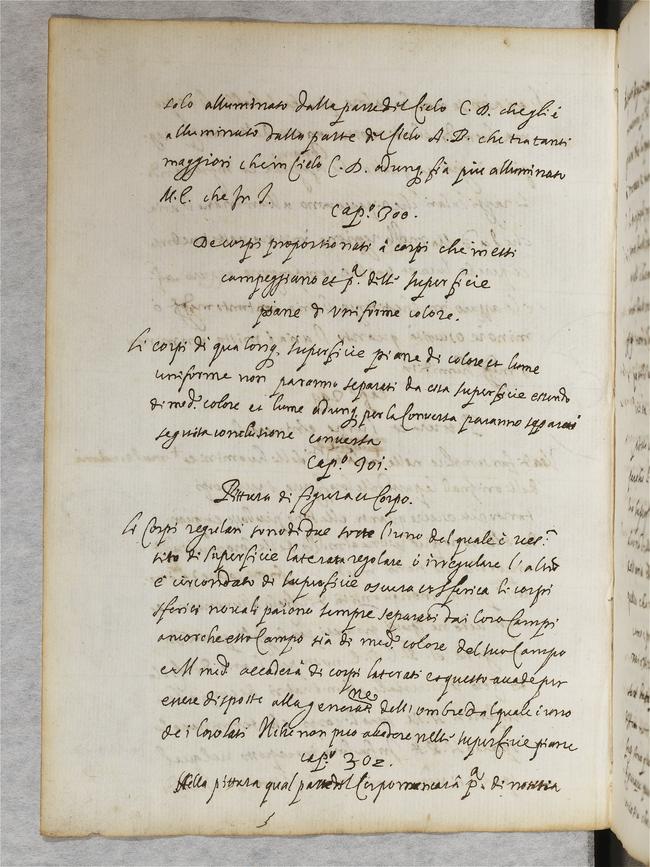 solo alluminato dalla parte del Cielo C. D. che gli è
alluminato dalla parte del Cielo A. B. che tra tanti
maggiori che in Cielo C. D. adunq. sia piu alluminato
M. C. che In I.
Cap.º 300.
De corpi proportionati à corpi che messi
campeggiano et p.ª dell: superficie
piane di Uniforme colore.
Li corpi di qua long. superficie piane di colore et lume
uniforme non paranno separati da essa superficie essendo
di med.º colore et lume adunq. per la Conversa paranno separati
seguita conclusione conversa
Cap.º 301.
Pittura di figura et Corpo.
Li Corpi regulari sono di due sorte l'uno del quale è ves-
tito di superficie laterata regolare ò irregulare l'altro
è circondato di superficie oscura et sferica li corpi
sferici no quali paiono sempre separati dai loro Campi
ancorche esso Campo sia di med.º colore del suo Campo
e il med.º accaderà di corpi laterati et questo accade per
essere disposte alla generatne dell'ombre dal quale è uno
de i loro lati Il che non puo accadere nelle superficie piane
cap.º 302.
Nella pittura qual parte del Corpo mancarà p.ª di notitia